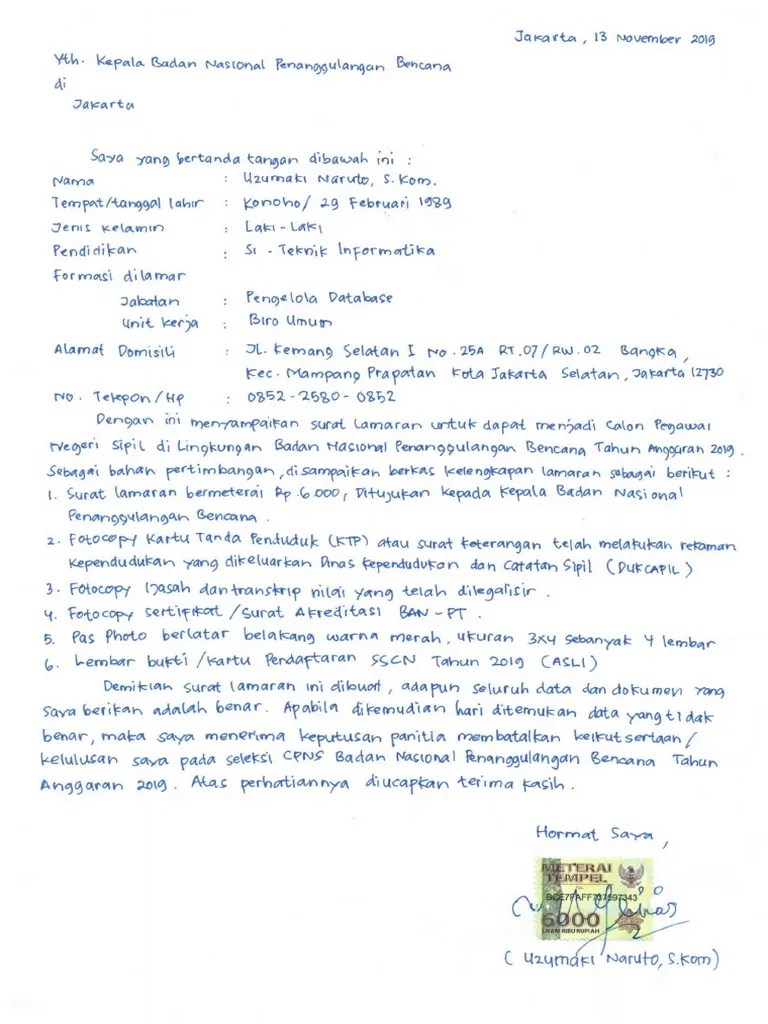 Jakarta, 13 November 2019
Yth. Kepala Badan Nasional Penanggulangan Bencana
di
Jakarta
Saya yang bertanda tangan dibawah ini :
Nama : Uzumaki Naruto, S.Kom.
Tempat/tanggal lahir : Konoho/ 29 Februari 1989
Jenis Kelamin : Laki-Laki
Pendidikan : S1 - Teknik Informatika
Formasi dilamar
Jabatan : Pengelola Database
Unit Kerja : Biro Umum
Alamat Domisili : JL. Kemang Selatan I No. 25A RT.07/RW.02 Bangka,
Kec. Mampang Prapatan Kota Jakarta Selatan, Jakarta 12730
No. Telepon/Hp : 0852-2580-0852
Dengan ini menyampaikan surat lamaran untuk dapat menjadi Calon Pegawai
Negeri Sipil di Lingkungan Badan Nasional Penanggulangan Bencana Tahun Anggaran 2019.
Sebagai bahan pertimbangan, disampaikan berkas kelengkapan lamaran sebagai berikut :
1. Surat lamaran bermeterai Rp.6.000, Ditujukan kepada Kepala Badan Nasional
Penanggulangan Bencana.
2. Fotocopy Kartu Tanda Penduduk (KTP) atau surat keterangan telah melakukan rekaman
kependudukan yang dikeluarkan Dinas Kependudukan dan Catatan Sipil (DUKCAPIL)
3. Fotocopy Ijasah dan transkrip nilai yang telah dilegalisir.
4. Fotocopy sertifikat/Surat Akreditasi BAN-PT.
5. Pas Photo berlatar belakang warna merah, ukuran 3x4 sebanyak 4 lembar
6. Lembar bukti/Kartu Pendaftaran SSCN Tahun 2019 (ASLI)
Demikian surat lamaran ini dibuat, adapun seluruh data dan dokumen yang
saya berikan adalah benar. Apabila dikemudian hari ditemukan data yang tidak
benar, maka saya menerima keputusan panitia membatalkan keikutsertaan/
kelulusan saya pada seleksi CPNS Badan Nasional Penanggulangan Bencana Tahun
Anggaran 2019. Atas perhatiannya diucapkan terima kasih.
Hormat Saya,
METERAI
TEMPEL
6000
ENAM RIBU RUPIAH
(Uzumaki Naruto, S.Kom)